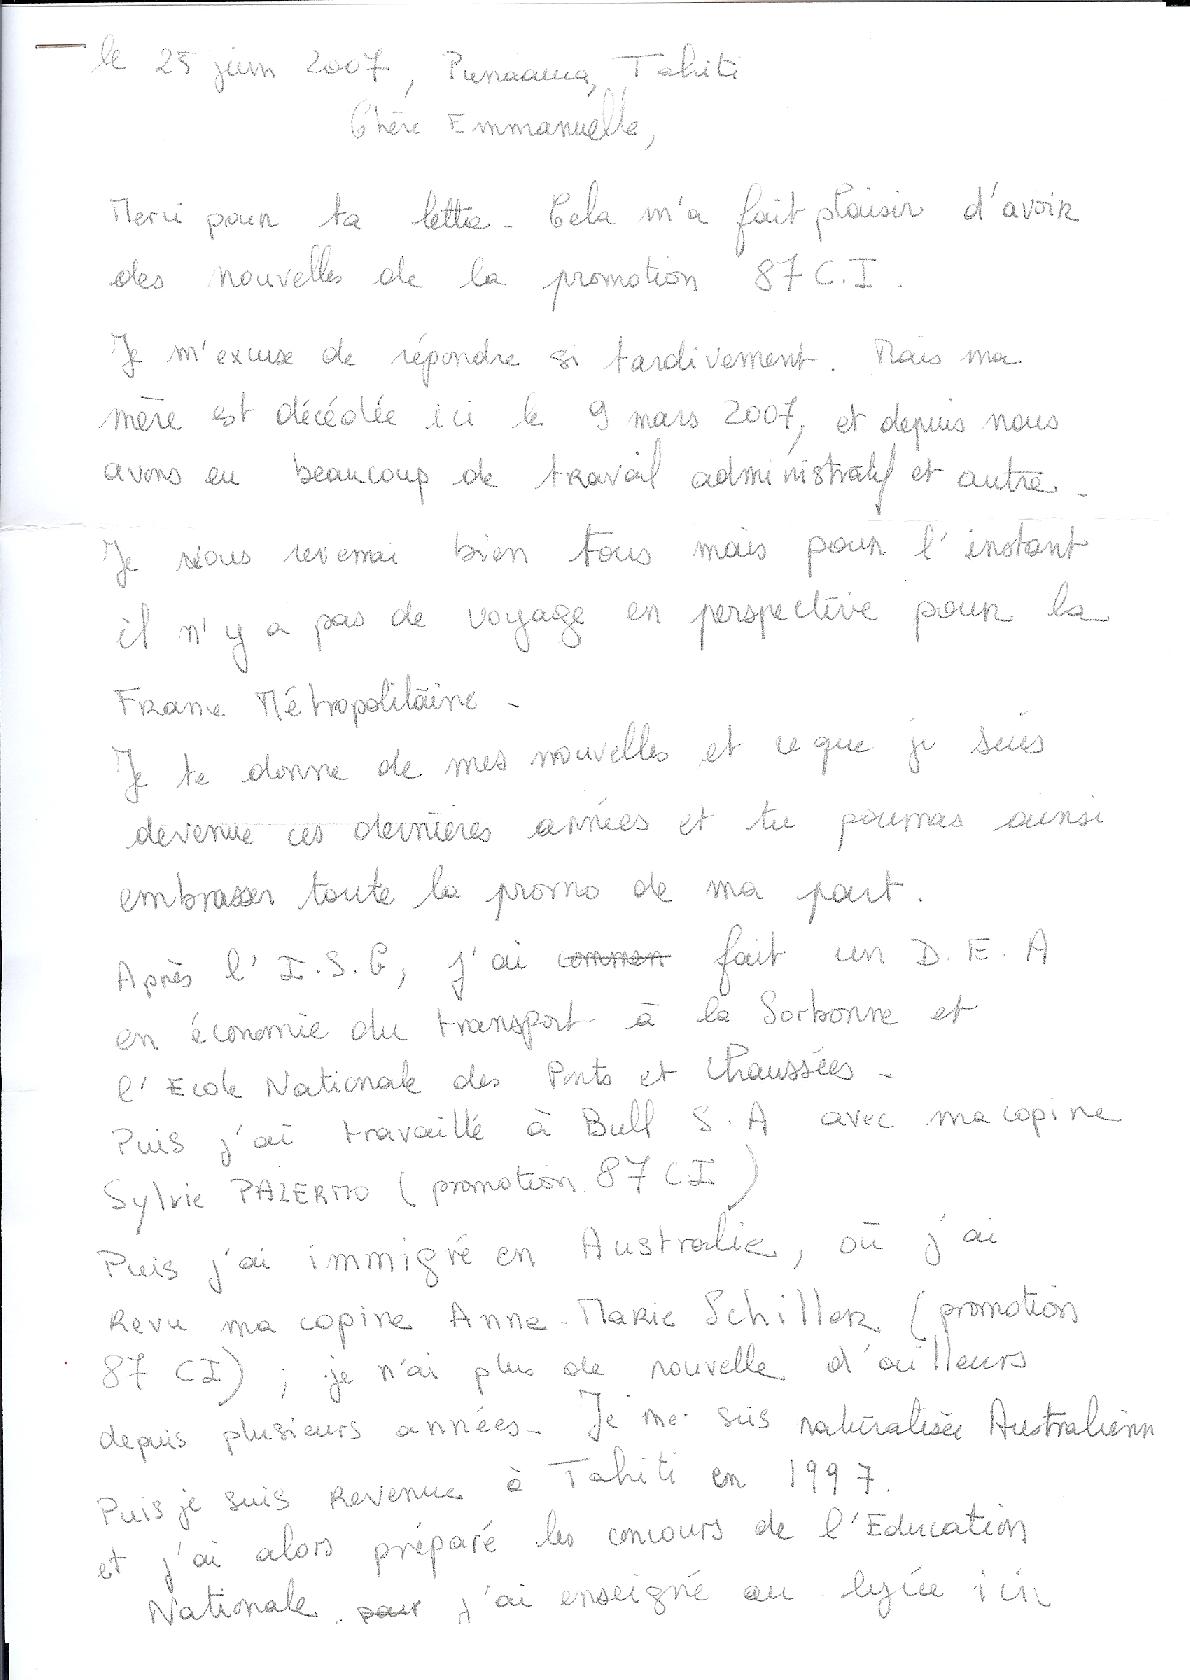 le 25 juin 2007, Punaauia, Tahiti
Chère Emmanuelle,
Merci pour ta lettre. Cela m'a fait plaisir d'avoir
des nouvelles de la promotion 87 C.I.
Je m'excuse de répondre si tardivement. Mais ma
mère est décédée ici le 9 mars 2007, et depuis nous
avons eu beaucoup de travail administratif et autre.
Je vous reverrai bien tous mais pour l'instant
il n'y a pas de voyage en perspective pour la
France Métropolitaine.
Je te donne de mes nouvelles et ce que je suis
devenue ces dernières années et tu pourras ainsi
embrasser toute la promo de ma part.
Après l'I.S.G, j'ai commen fait un D.E.A
en économie du transport à la Sorbonne et
l'Ecole Nationale des Ponts et Chaussées.
Puis j'ai travaillé à Bull S.A avec ma copine
Sylvie PALERMO (promotion 87 CI)
Puis j'ai immigré en Australie, où j'ai
Revu ma copine Anne-Marie Schiller (promotion
87 CI) ; je n'ai plus de nouvelle d'ailleurs
depuis plusieurs années. Je me suis naturalisée Australienn
Puis je suis Revenue à Tahiti en 1997.
et j'ai alors préparé les concours de l'Education
Nationale. pour j'ai enseigné au lycée ici